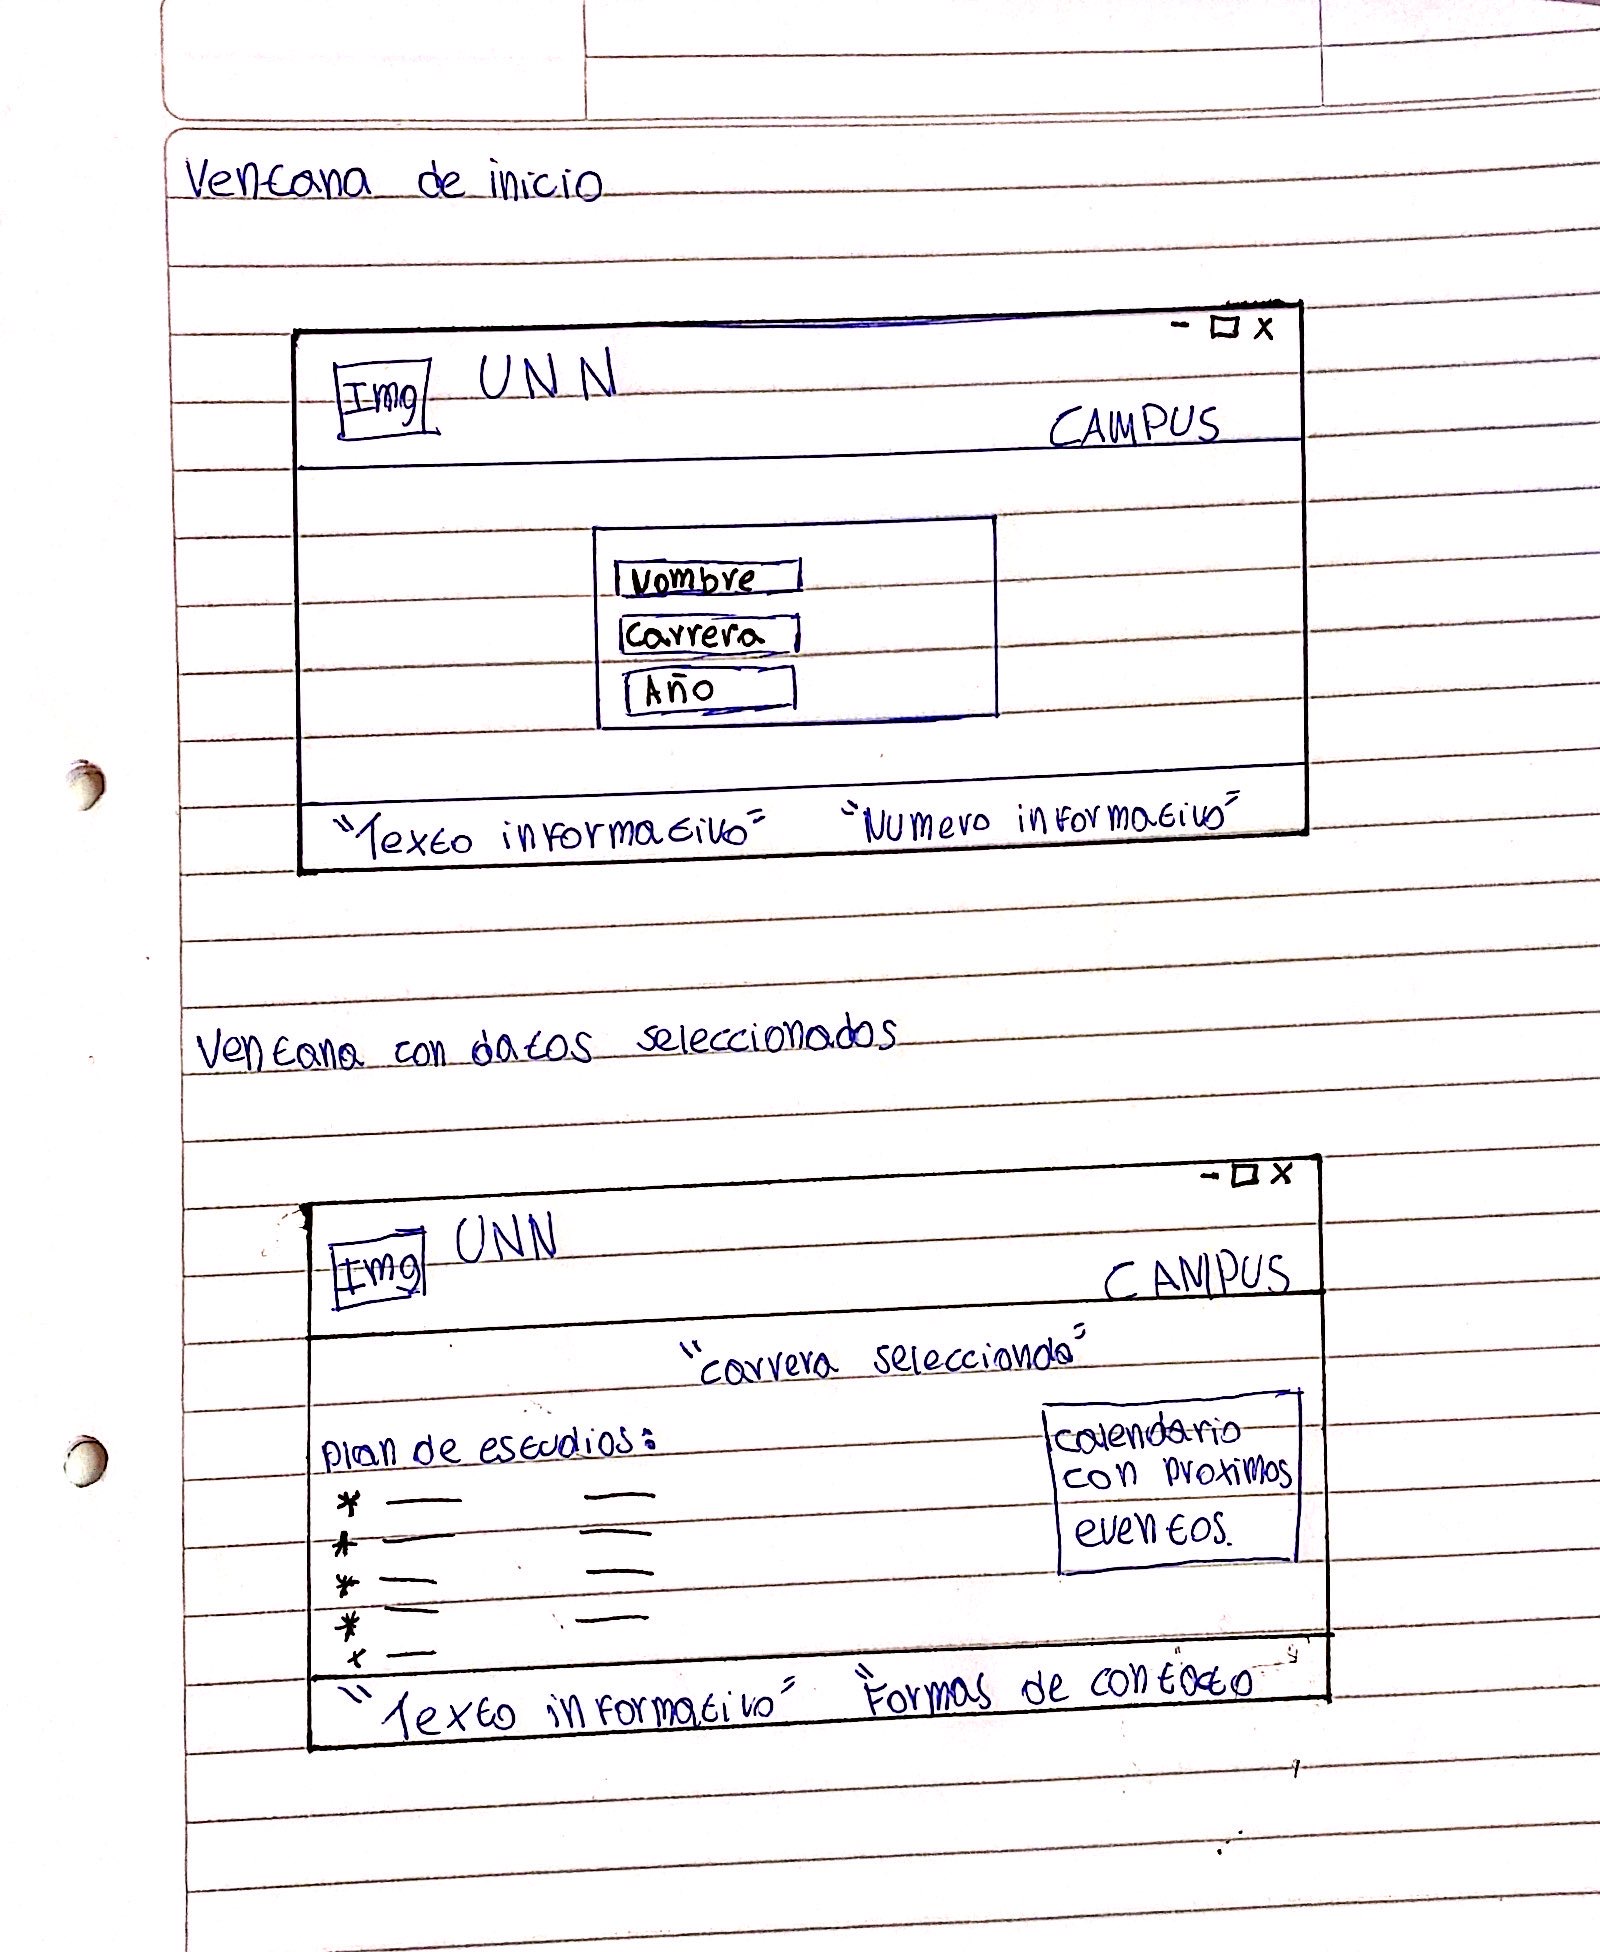 Ventana de inicio
- □ x
Img UNN
CAMPUS
Nombre
Carrera
Año
"Texto informativo" "Numero informativo"
Ventana con datos seleccionados
- □ x
Img UNN
CAMPUS
"carrera selecciondo"
Plan de estudios:
calendario
con proximos
eventos.
"Texto informativo" "Formas de contacto"